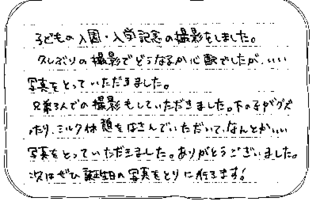 子どもの入園・入学記念の撮影をしました。
久しぶりの撮影でどうなるか心配でしたが、いい
写真をとっていただきました。
兄弟3人での撮影もしていただきました。下の子がグズ
ったり、ミルク休憩をはさんでいただいて、なんとかいい
写真をとっていただきました。ありがとうございました。
次はぜひ誕生日の写真をとりに行きます!